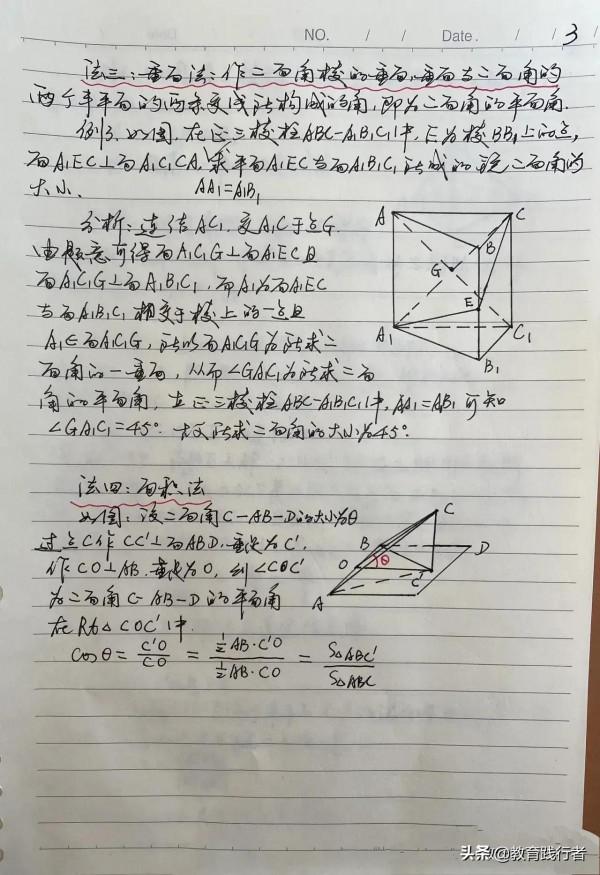 NO. / / Date. / / 3
法三:垂面法:作二面角棱的垂面,垂面与二面角的
两个半平面的两条交线所构成的角,即为二面角的平面角.
例3.如图.在正三棱柱ABC-A₁B₁C₁中,E为棱BB₁上的点,
面A₁EC⊥面A₁C₁CA,求平面A₁EC与面A₁B₁C₁所成的锐二面角的
大小. AA₁=A₁B₁
分析:连结AC₁.交A₁C于点G.
由题意可得面A₁C₁G⊥面A₁EC且
面A₁C₁G⊥面A₁B₁C₁,而A₁为面A₁EC
与面A₁B₁C₁相交于棱上的一点且
A₁∈面A₁C₁G,所以面A₁C₁G为所求二
面角的一垂面,从而∠GAC₁为所求二面
角的平面角,在正三棱柱ABC-A₁B₁C₁中,AA₁=AB₁可知
∠GA₁C₁=45°.故所求二面角的大小为45°.
A
C
B
G
E
A₁
C₁
B₁
法四:面积法
如图:设二面角C-AB-D的大小为θ
过点C作CC'⊥面ABD.垂足为C',
作CO⊥AB.垂足为O,则∠COC'
为二面角C-AB-D的平面角
在Rt△COC'中.
cosθ=C'O/CO=½AB·C'O/½AB·CO=S△ABC'/S△ABC
C
B
D
O
θ
C'
A
头条@教育践行者